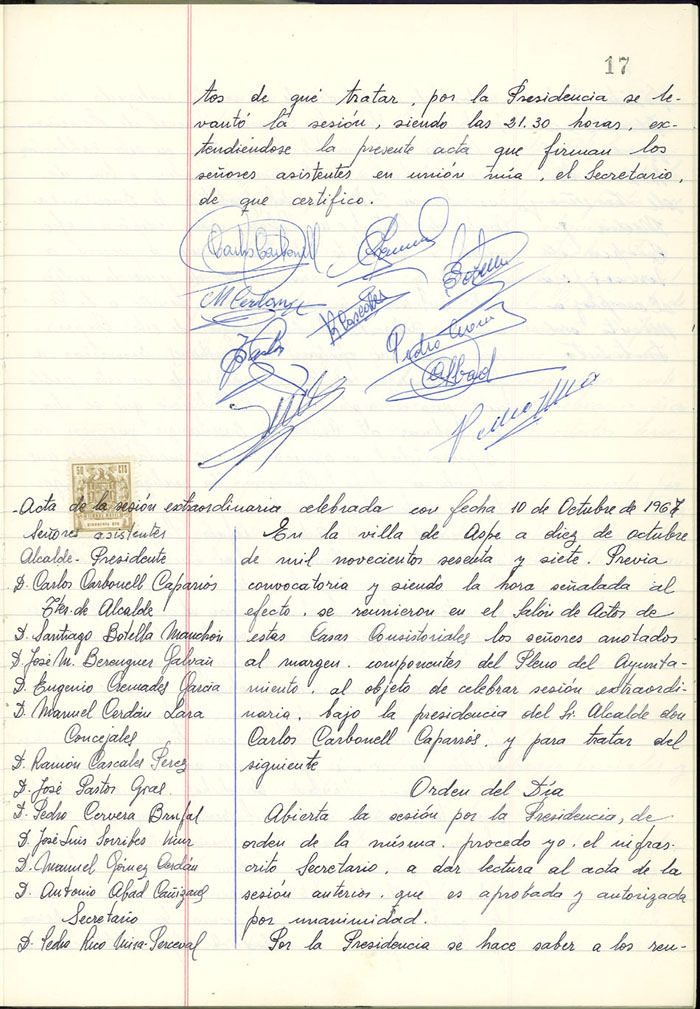 17
tos de qué tratar, por la Presidencia se le-
vantó la sesión, siendo las 21.30 horas, ex-
tendiéndose la presente acta que firman los
señores asistentes en unión mía, el Secretario,
de que certifico.
Carlos Carbonell
Botella
M Cerdán
R Cascales
Pedro
Abad
50 CTS
-Acta de la sesión extraordinaria celebrada con fecha 10 de Octubre de 1967
Señores asistentes
Alcalde-Presidente
D. Carlos Carbonell Caparrós
Ttes. de Alcalde
D. Santiago Botella Manchón
D. José M. Berenguer Galvañ
D. Eugenio Cremades García
D. Manuel Cerdán Lara
Concejales
D. Ramón Cascales Pérez
D. José Pastor Gras
D. Pedro Cervera Brufal
D. José Luis Sorribes Mur
D. Manuel Gómez Cerdán
D. Antonio Abad Cañizares
Secretario
D. Pedro Rico Mira-Perceval
En la villa de Aspe a diez de octubre
de mil novecientos sesenta y siete. Previa
convocatoria y siendo la hora señalada al
efecto, se reunieron en el Salón de Actos de
estas Casas Consistoriales los señores anotados
al margen, componentes del Pleno del Ayunta-
miento, al objeto de celebrar sesión extraordi-
naria, bajo la presidencia del Sr. Alcalde don
Carlos Carbonell Caparrós, y para tratar del
siguiente
Orden del Día
Abierta la sesión por la Presidencia, de
orden de la misma, procedo yo, el infras-
crito Secretario, a dar lectura al acta de la
sesión anterior, que es aprobada y autorizada
por unanimidad.
Por la Presidencia se hace saber a los reu-